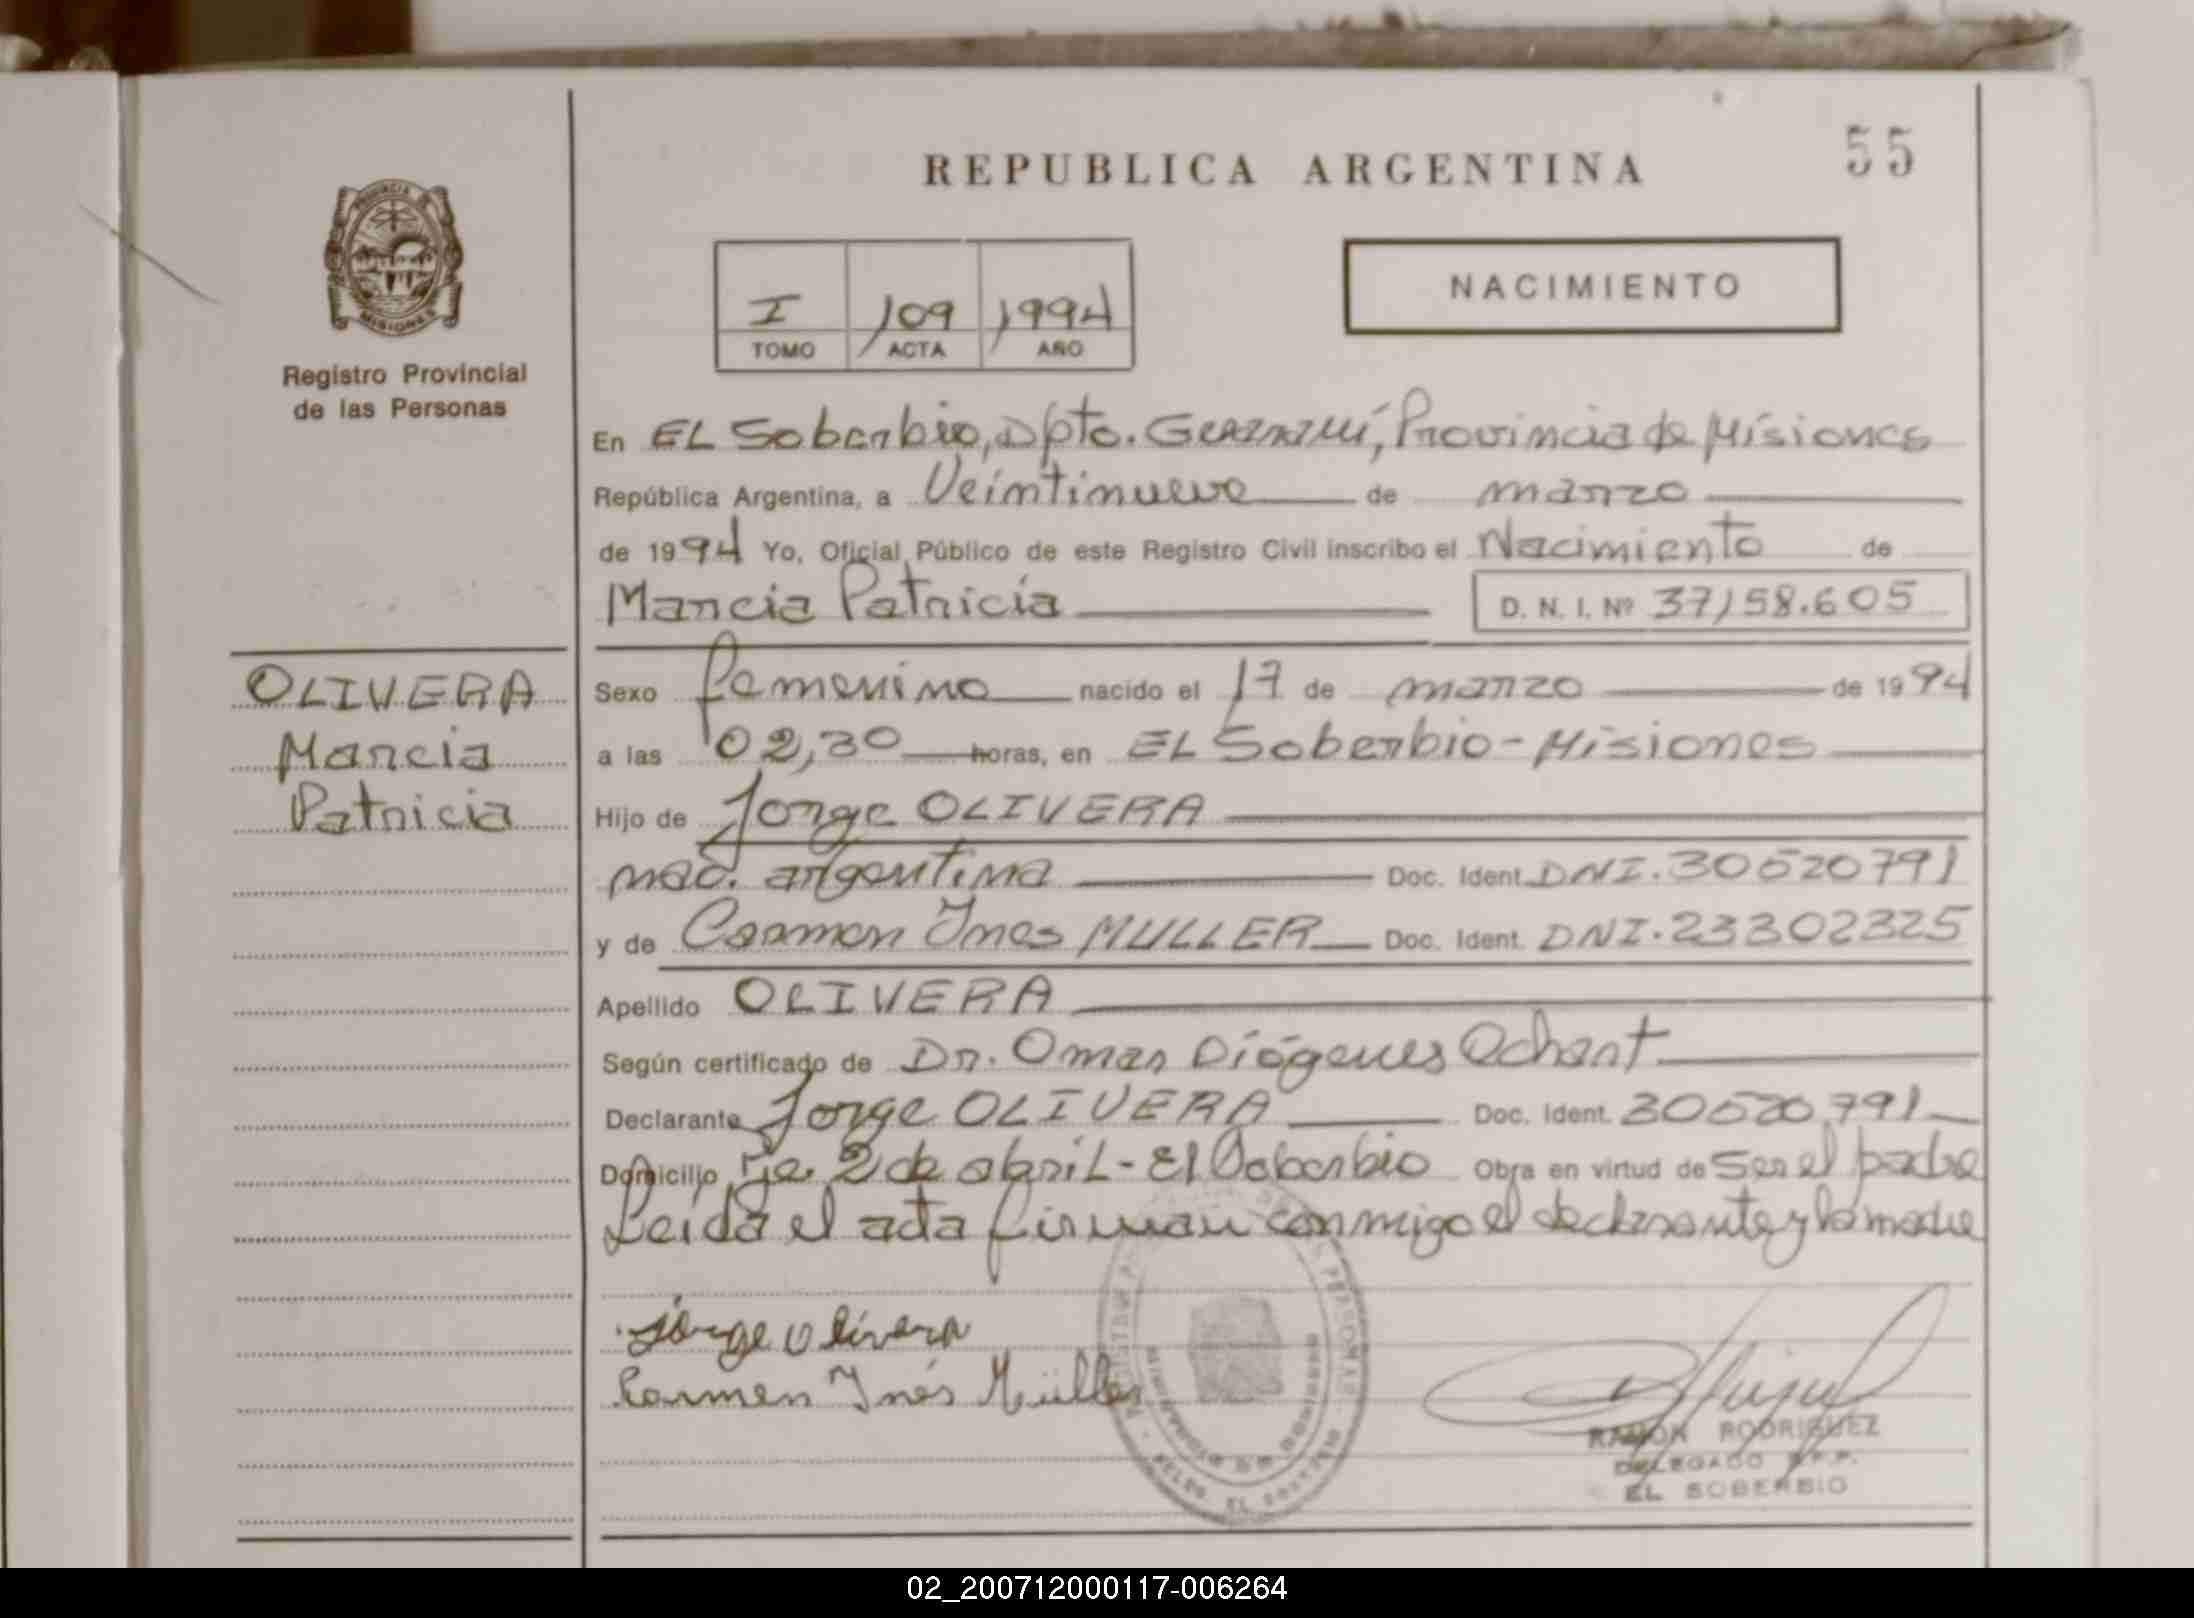 REPUBLICA ARGENTINA
55
PROVINCIA DE
MISIONES
Registro Provincial
de las Personas
I 109 1994
TOMO ACTA AÑO
NACIMIENTO
En EL Soberbio, Dpto. Guaraní, Provincia de Misiones
República Argentina, a Veintinueve de marzo
de 1994 Yo, Oficial Público de este Registro Civil inscribo el Nacimiento de
Marcia Patricia D. N. I. Nº 37158.605
OLIVERA
Marcia
Patricia
Sexo femenino nacido el 17 de marzo de 1994
a las 02,30 horas, en EL Soberbio - Misiones
Hijo de Jorge OLIVERA
nac. argentina Doc. Ident. DNI. 30520791
y de Carmen Ines MULLER Doc. Ident. DNI. 23302325
Apellido OLIVERA
Según certificado de Dr. Omar Diógenes Ochant
Declarante Jorge OLIVERA Doc. Ident. 30520791
Domicilio 2 de abril - El Soberbio Obra en virtud de Ser el padre
Leída el acta firman conmigo el declarante y la madre
Jorge Olivera
Carmen Inés Müller
RAMON RODRIGUEZ
DELEGADO R.P.P.
EL SOBERBIO
02_200712000117-006264